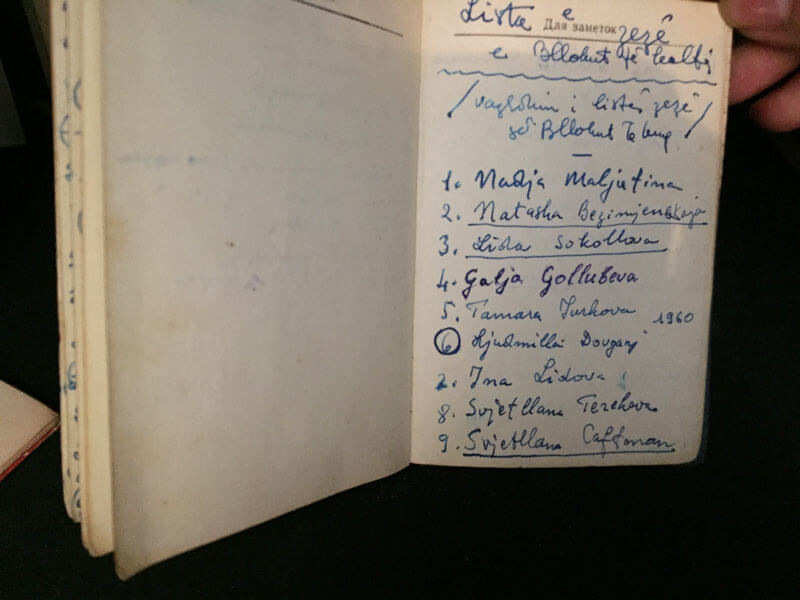 Lista e zezë
Для заметок
e Bllokut të kalbë
/vazhdim i listës zezë/
Bllokut
1. Nadja Maljutina
2. Natasha Bezimjenskaja
3. Lida Sokollova
4. Galja Gollubeva
5. Tamara Jurkova 1960
6 Ljudmilla Dovganj
7. Ina Lidova
8. Svjetllana Terehova
9. Svjetllana Caftman